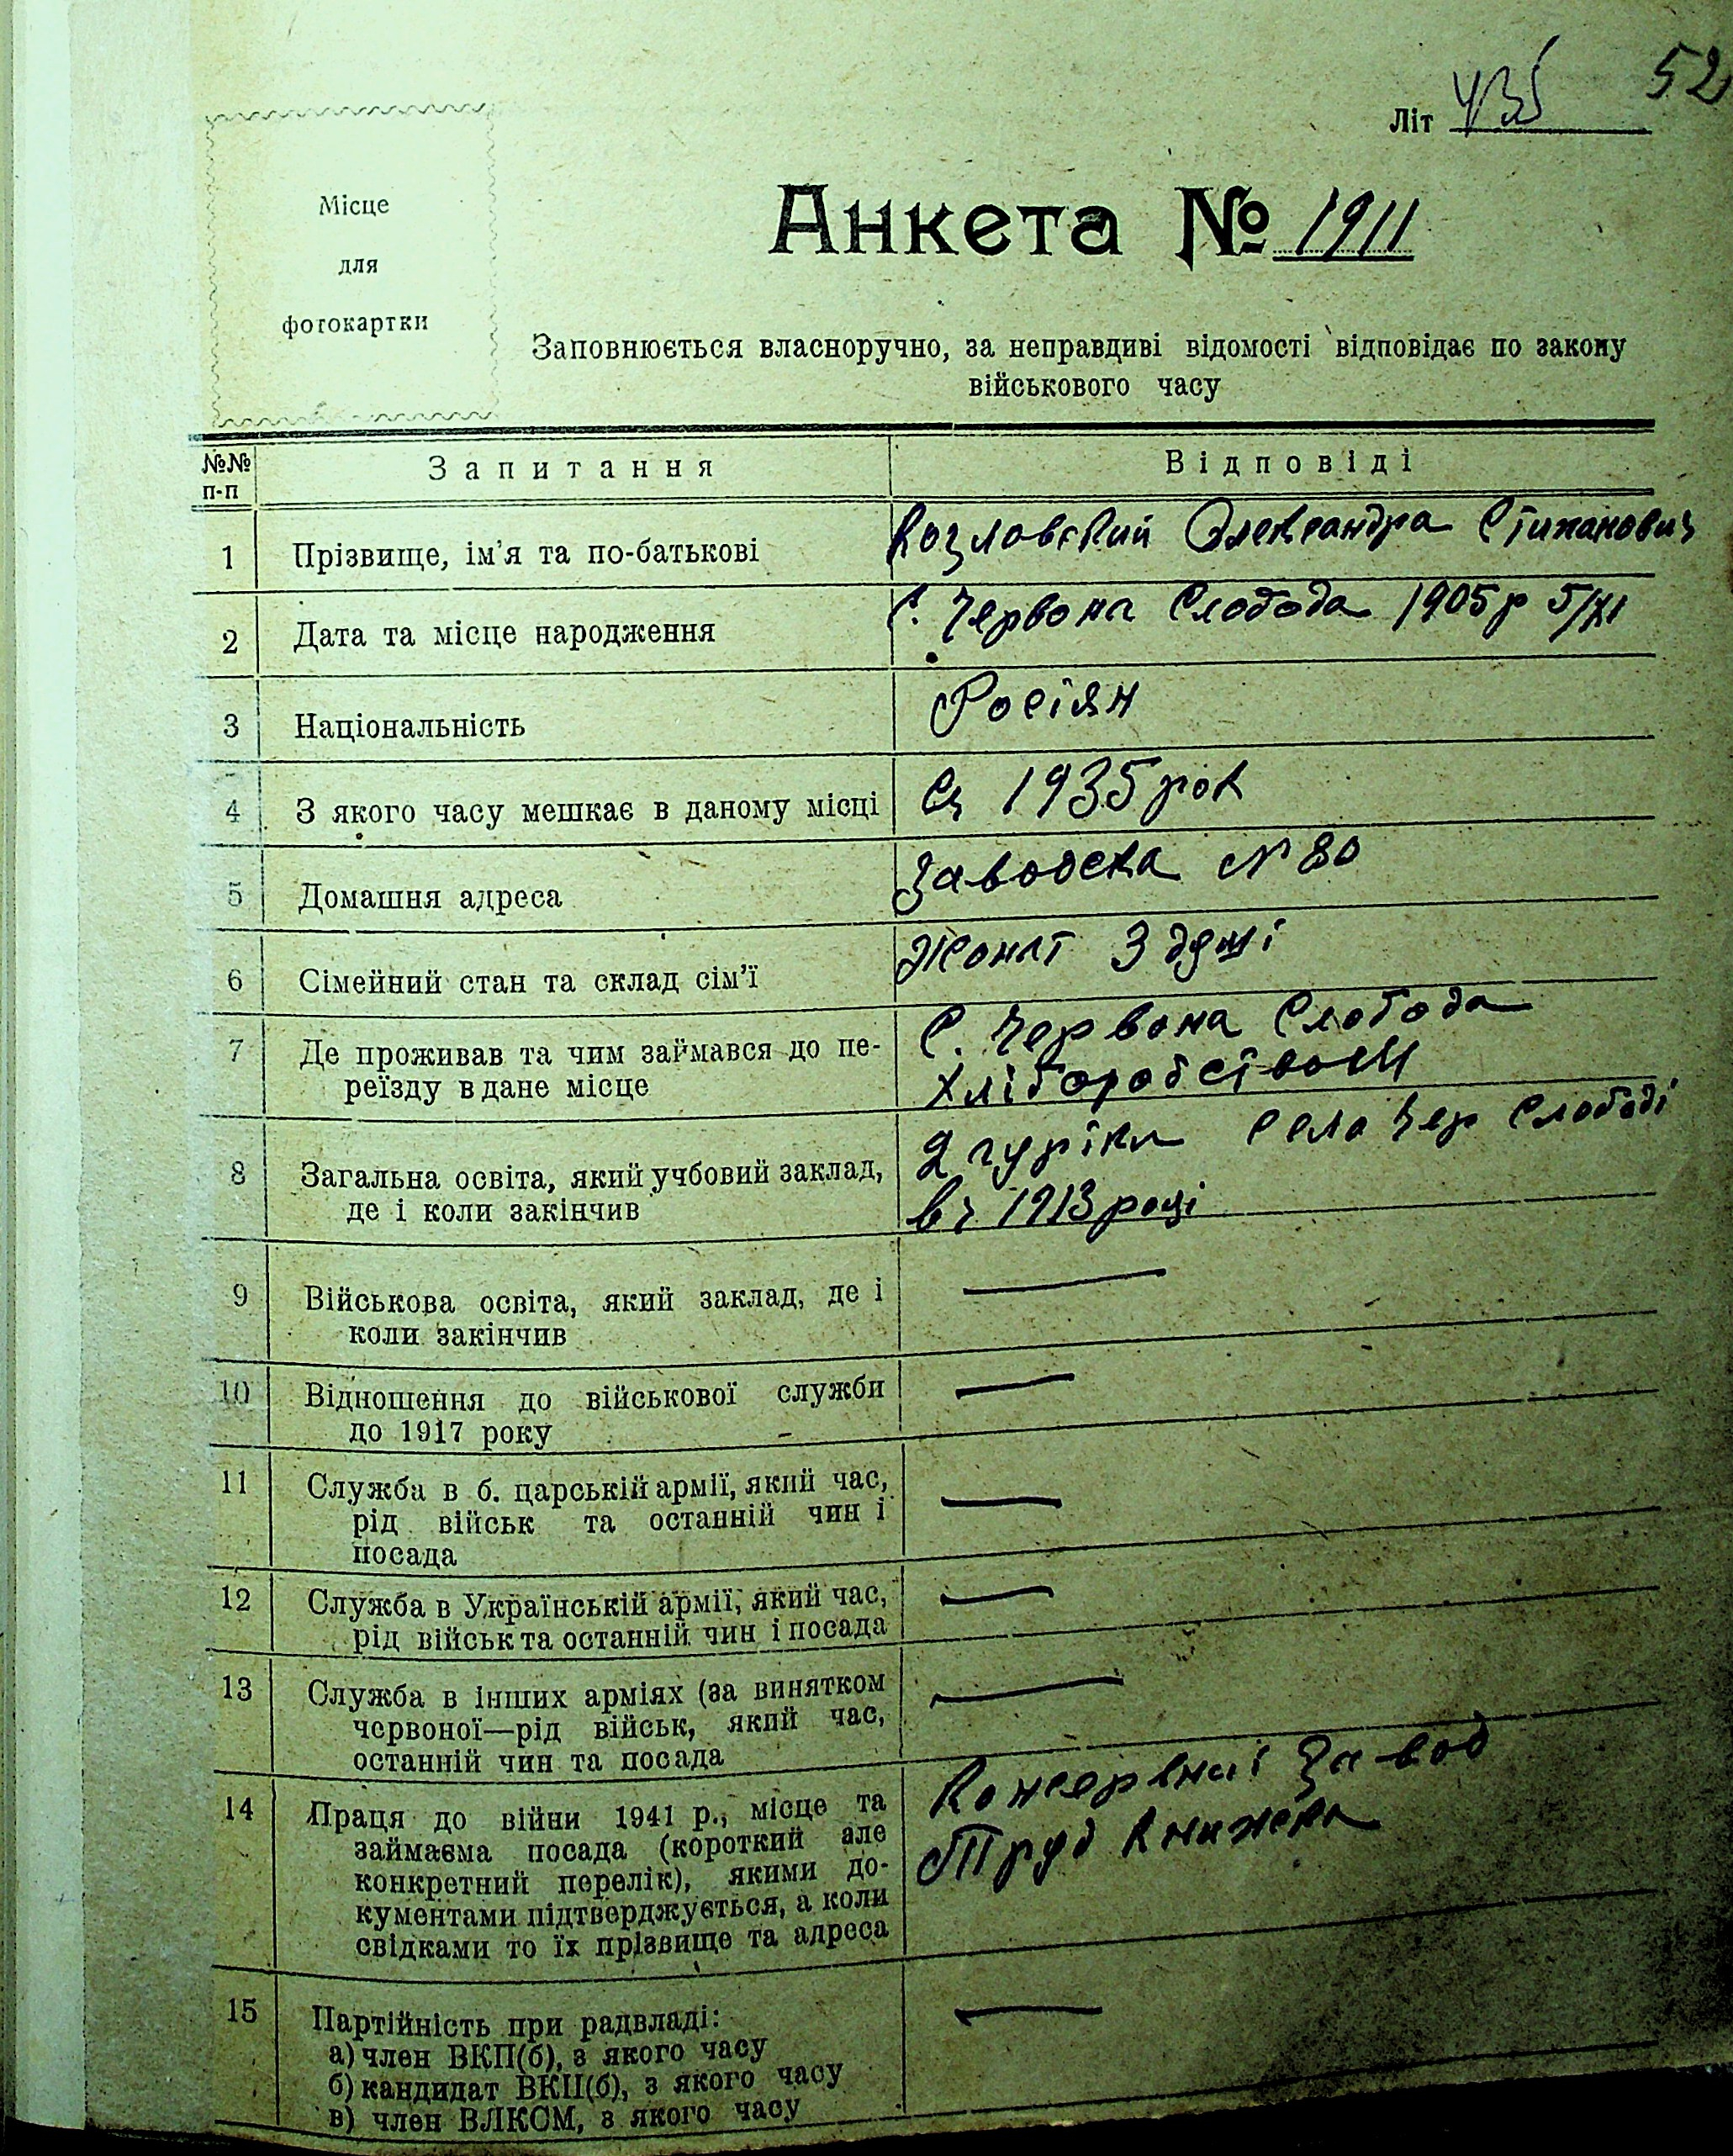 52
Літ
Місце
для
фотокартки
Анкета № 1911
Заповнюється власноручно, за неправдиві відомості відповідає по закону
військового часу
№№ п-п Запитання Відповіді
1 Прізвище, ім'я та по-батькові Козловский Олександра Стипанович
2 Дата та місце народження С. Червона Слобода 1905р 5/XI
3 Національність Росіян
4 З якого часу мешкає в даному місці Сз 1935 рок
5 Домашня адреса Заводска N 80
6 Сімейний стан та склад сім'ї Жонат 3 душі
7 Де проживав та чим займався до пе-
реїзду в дане місце
С. Червона Слобода
хліборобством
8 Загальна освіта, який учбовий заклад,
де і коли закінчив
2 села Чер Слободі
1913 році
9 Військова освіта, який заклад, де і
коли закінчив
—
10 Відношення до військової служби
до 1917 року
—
11 Служба в б. царській армії, який час,
рід військ та останній чин і
посада
—
12 Служба в Українській армії, який час,
рід військ та останній чин і посада
—
13 Служба в інших арміях (за винятком
червоної—рід військ, який час,
останній чин та посада
—
14 Праця до війни 1941 р., місце та
займаєма посада (короткий але
конкретний перелік), якими до-
кументами підтверджується, а коли
свідками то їх прізвище та адреса
Консервний Завод
Труд Книжека
15 Партійність при радвладі:
а) член ВКП(б), з якого часу
б) кандидат ВКП(б), з якого часу
в) член ВЛКСМ, з якого часу
—